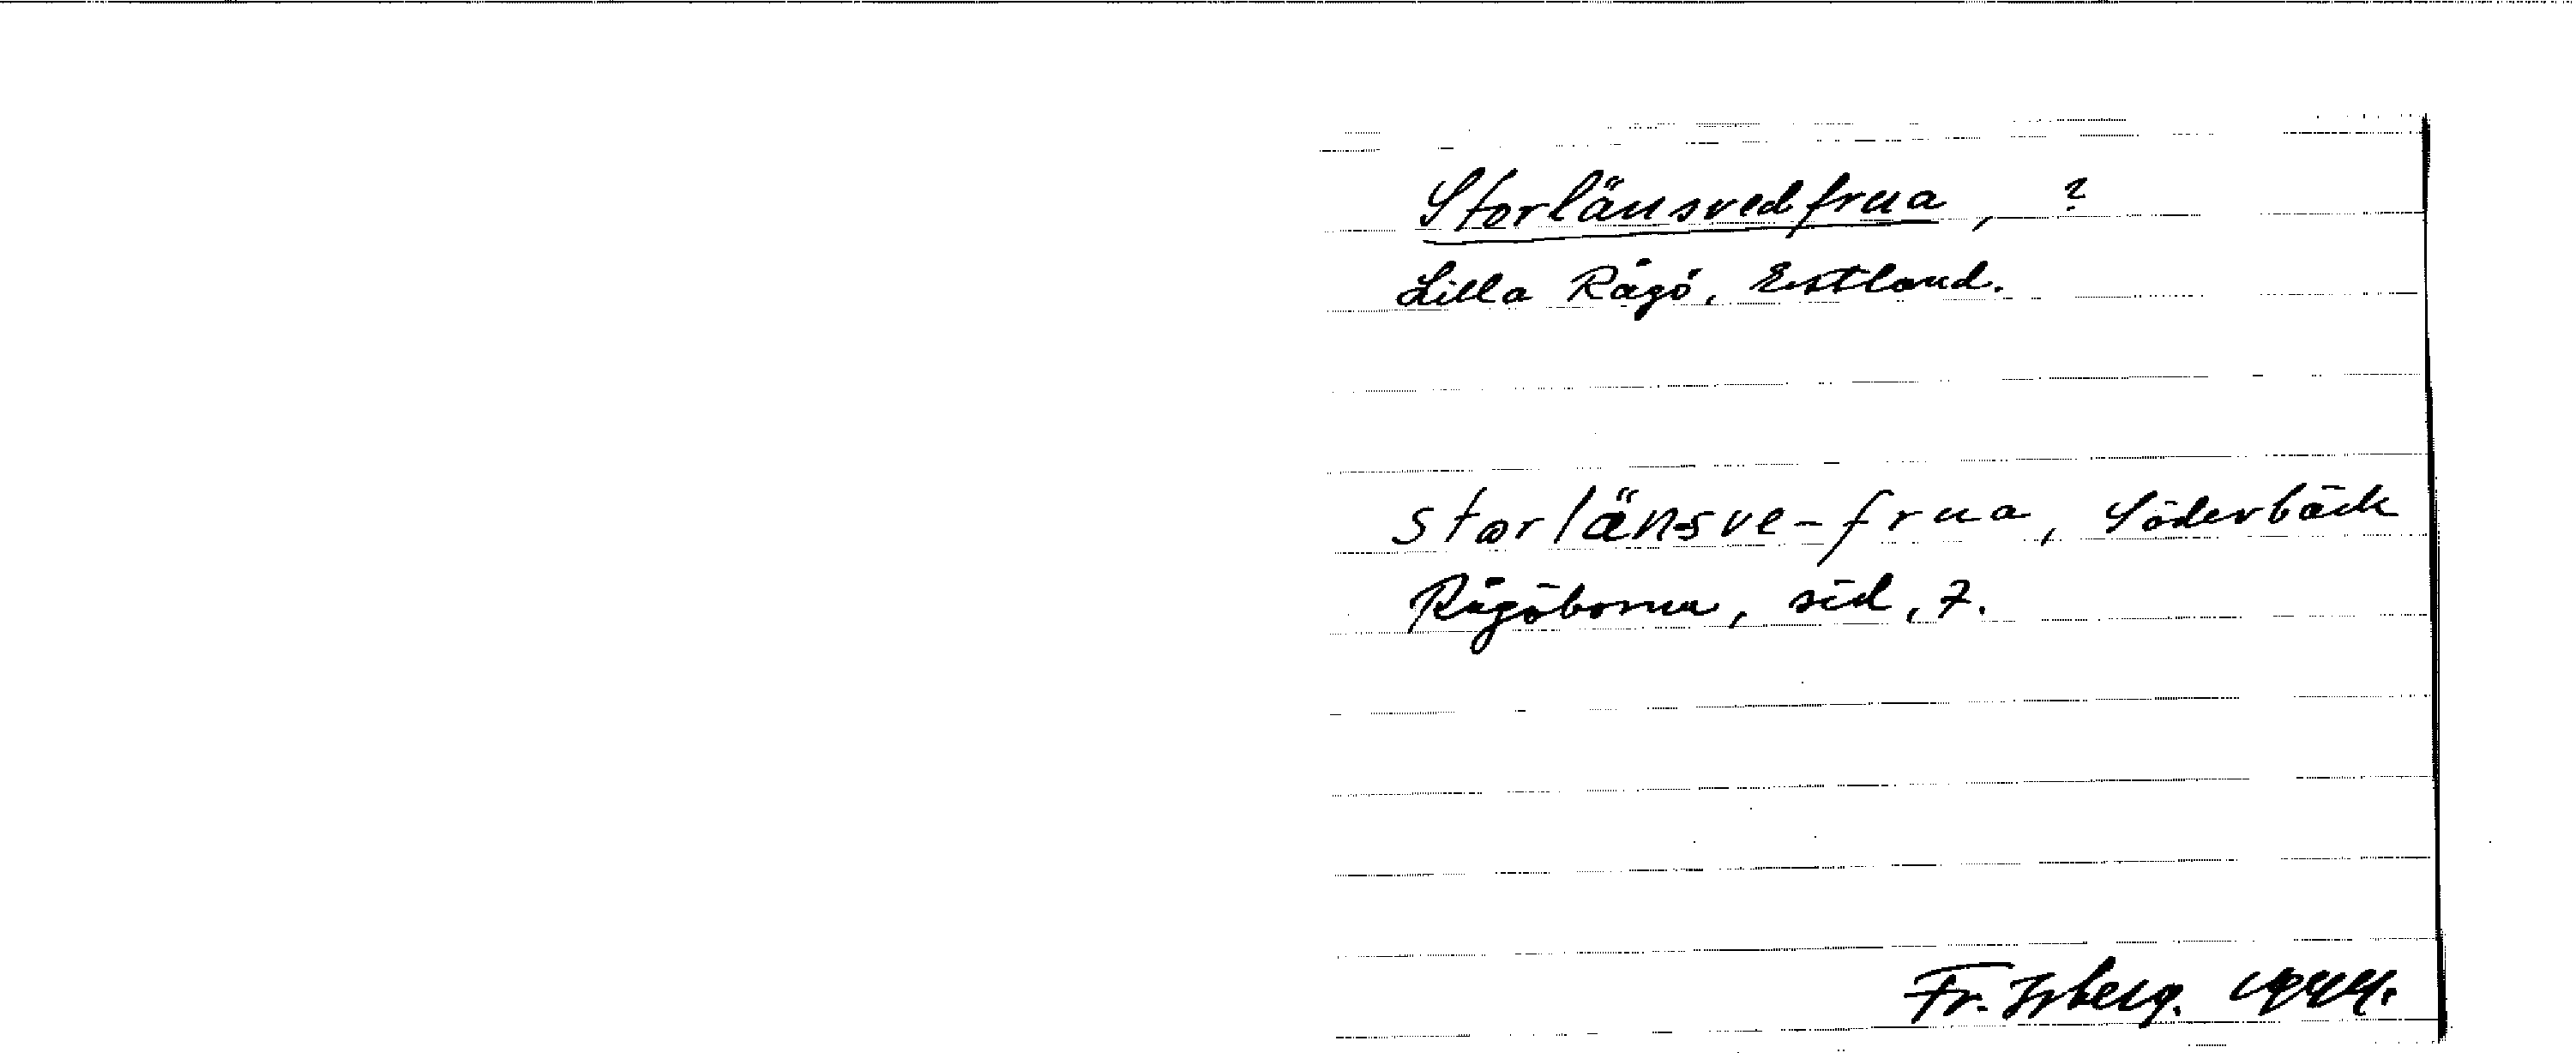 Storlänsvedfrua, ?
Lilla Rågö, Estland.
storlänsve-frua, Söderbäck
Rågöborna, sid, 7.
Fr. Isberg. 1944.